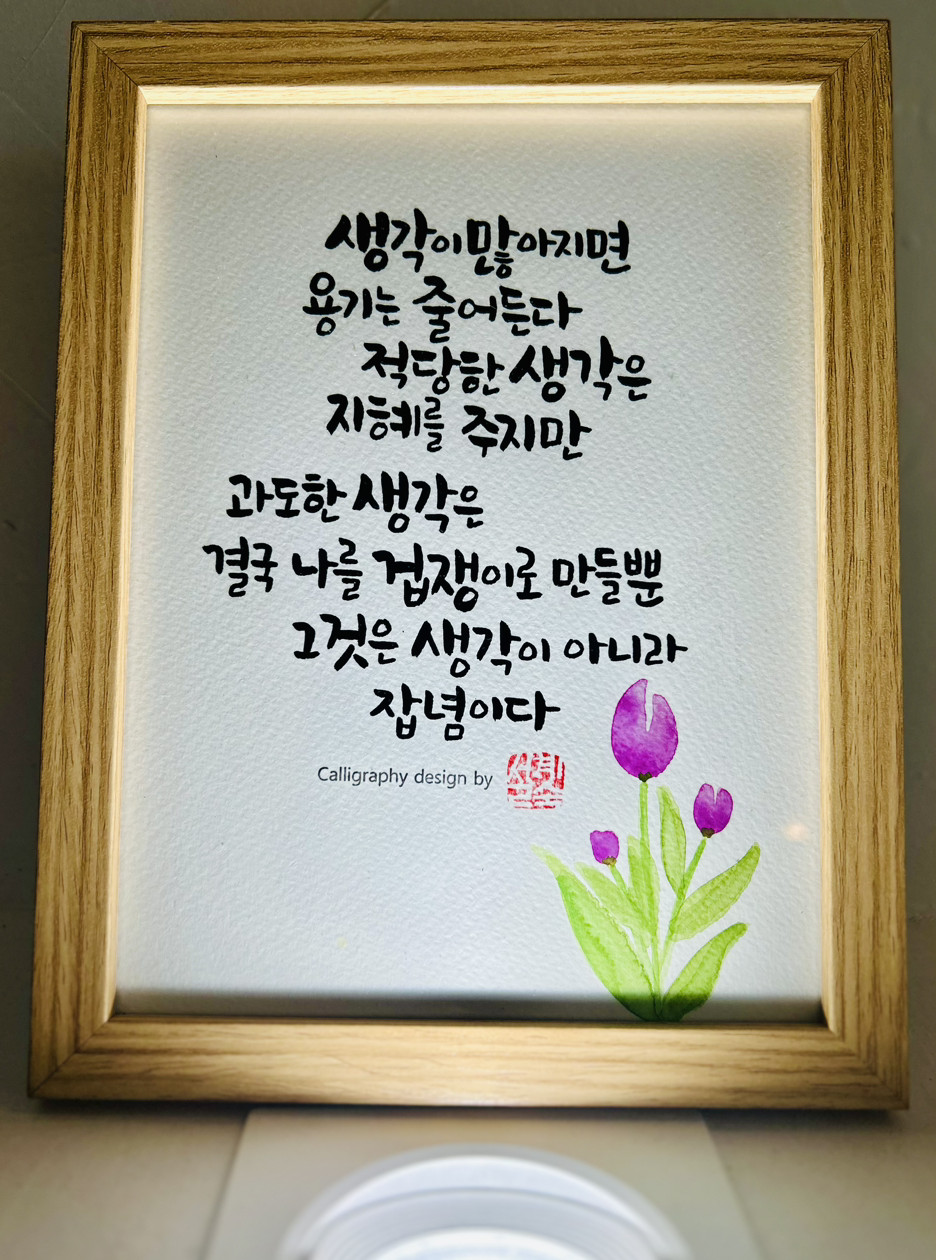 생각이 많아지면
용기는 줄어든다
적당한 생각은
지혜를 주지만
과도한 생각은
결국 나를 겁쟁이로 만들뿐
그것은 생각이 아니라
잡념이다
Calligraphy design by